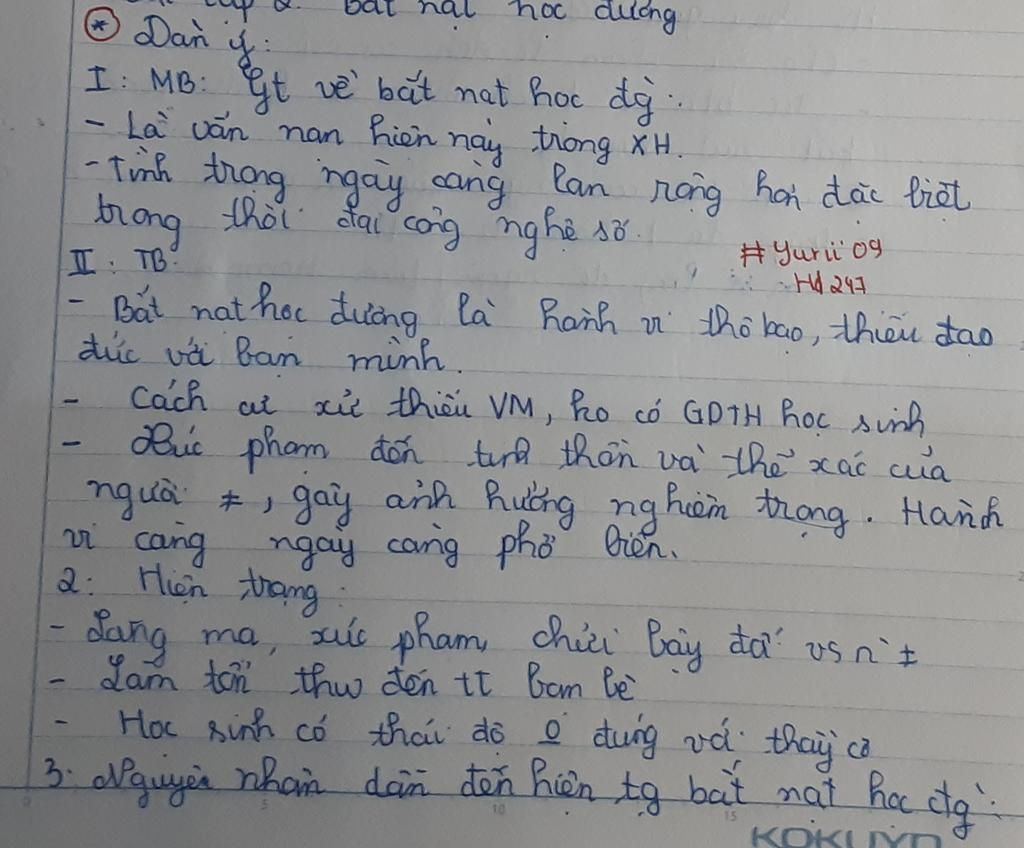 cấp 2. Bắt nạt học đường
* Dàn ý:
I: MB: Gt về bắt nạt học đg:
- Là vấn nạn hiện nay trong XH.
- Tình trạng ngày càng lan rộng hơn đặc biệt
trong thời đại công nghệ số.
#Yurii09
Hd247
II: TB:
- Bắt nạt học đường là hành vi thô bạo, thiếu đạo
đức với bạn mình.
- Cách cư xử thiếu VM, ko có GDTH học sinh
- Xúc phạm đến tinh thần và thể xác của
người ≠, gây ảnh hưởng nghiêm trọng. Hành
vi càng ngày càng phổ biến.
2: Hiện trạng:
- Lăng mạ, xúc phạm, chửi bậy đả vs n' ≠
- Làm tổn thw đến tt bạn bè
- Học sinh có thái độ 0 đúng với thầy cô
3: Nguyên nhân dẫn đến hiện tg bắt nạt học đg:
KOKUYO